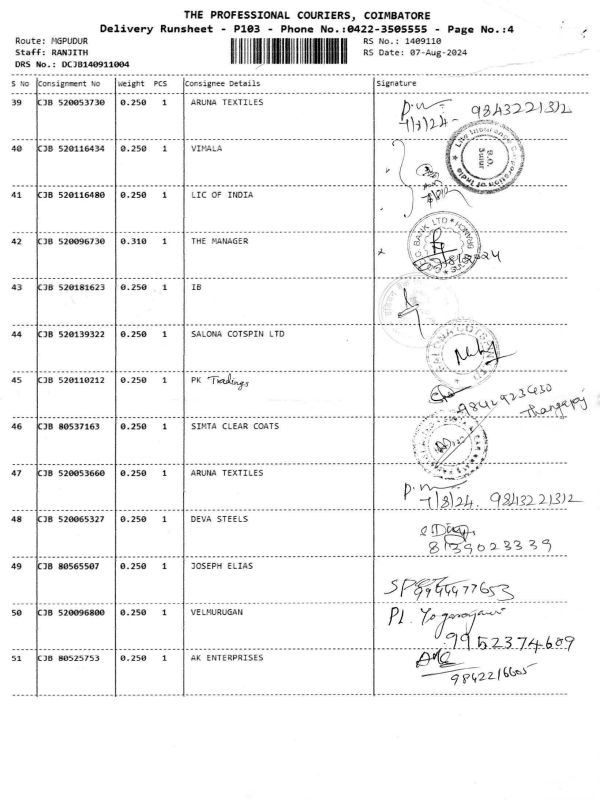 THE PROFESSIONAL COURIERS, COIMBATORE
Delivery Runsheet - P103 - Phone No.:0422-3505555 - Page No.:4
Route: MGPUDUR RS No.: 1409110
Staff: RANJITH RS Date: 07-Aug-2024
DRS No.: DCJB140911004
S No Consignment No Weight PCS Consignee Details Signature
39 CJB 520053730 0.250 1 ARUNA TEXTILES
7/8/24- 9843221312
40 CJB 520116434 0.250 1 VIMALA
Life Insurance Corporation of India
41 CJB 520116480 0.250 1 LIC OF INDIA
42 CJB 520096730 0.310 1 THE MANAGER
BANK LTD
43 CJB 520181623 0.250 1 IB
44 CJB 520139322 0.250 1 SALONA COTSPIN LTD
45 CJB 520110212 0.250 1 PK Tradings
9842923430
Thangaraj
46 CJB 80537163 0.250 1 SIMTA CLEAR COATS
47 CJB 520053660 0.250 1 ARUNA TEXTILES
7/8/24. 9843221312
48 CJB 520065327 0.250 1 DEVA STEELS
8139023339
49 CJB 80565507 0.250 1 JOSEPH ELIAS
9944477653
50 CJB 520096800 0.250 1 VELMURUGAN
9952374609
51 CJB 80525753 0.250 1 AK ENTERPRISES
9842216605